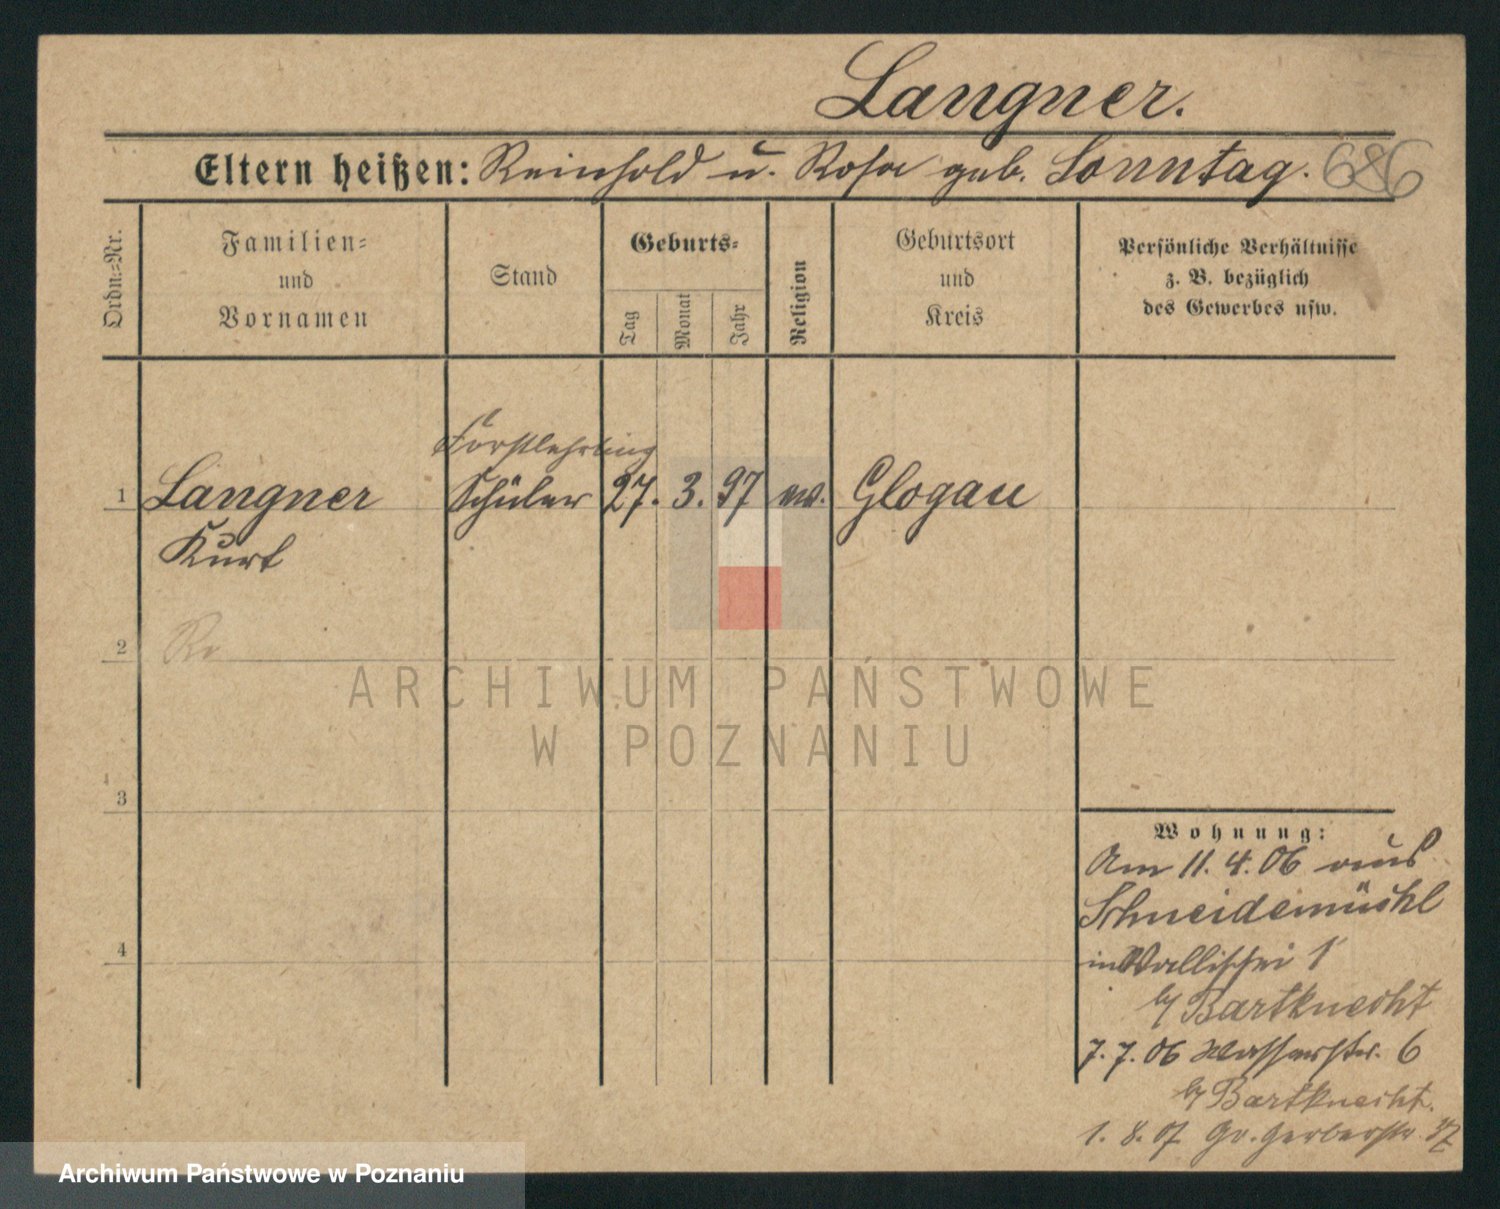 Langner.
Eltern heißen: Reinhold u. Rosa geb. Sonntag. 686
Ordn.=Nr.
Familien=
und
Vornamen
Stand
Geburts=
Tag
Monat
Jahr
Religion
Geburtsort
und
Kreis
Persönliche Verhältnisse
z. B. bezüglich
des Gewerbes usw.
Forstlehrling
1 Langner Schüler 27. 3. 97 ev. Glogau
Kurt
2
3
4
ARCHIWUM PAŃSTWOWE
W POZNANIU
Wohnung:
Am 11. 4. 06 aus
Schneidemühl
in Wallischei 1
b/ Bartknecht
7. 7. 06 Wasserstr. 6
b/ Bartknecht.
1. 8. 07 Gr. Gerberstr.
Archiwum Państwowe w Poznaniu